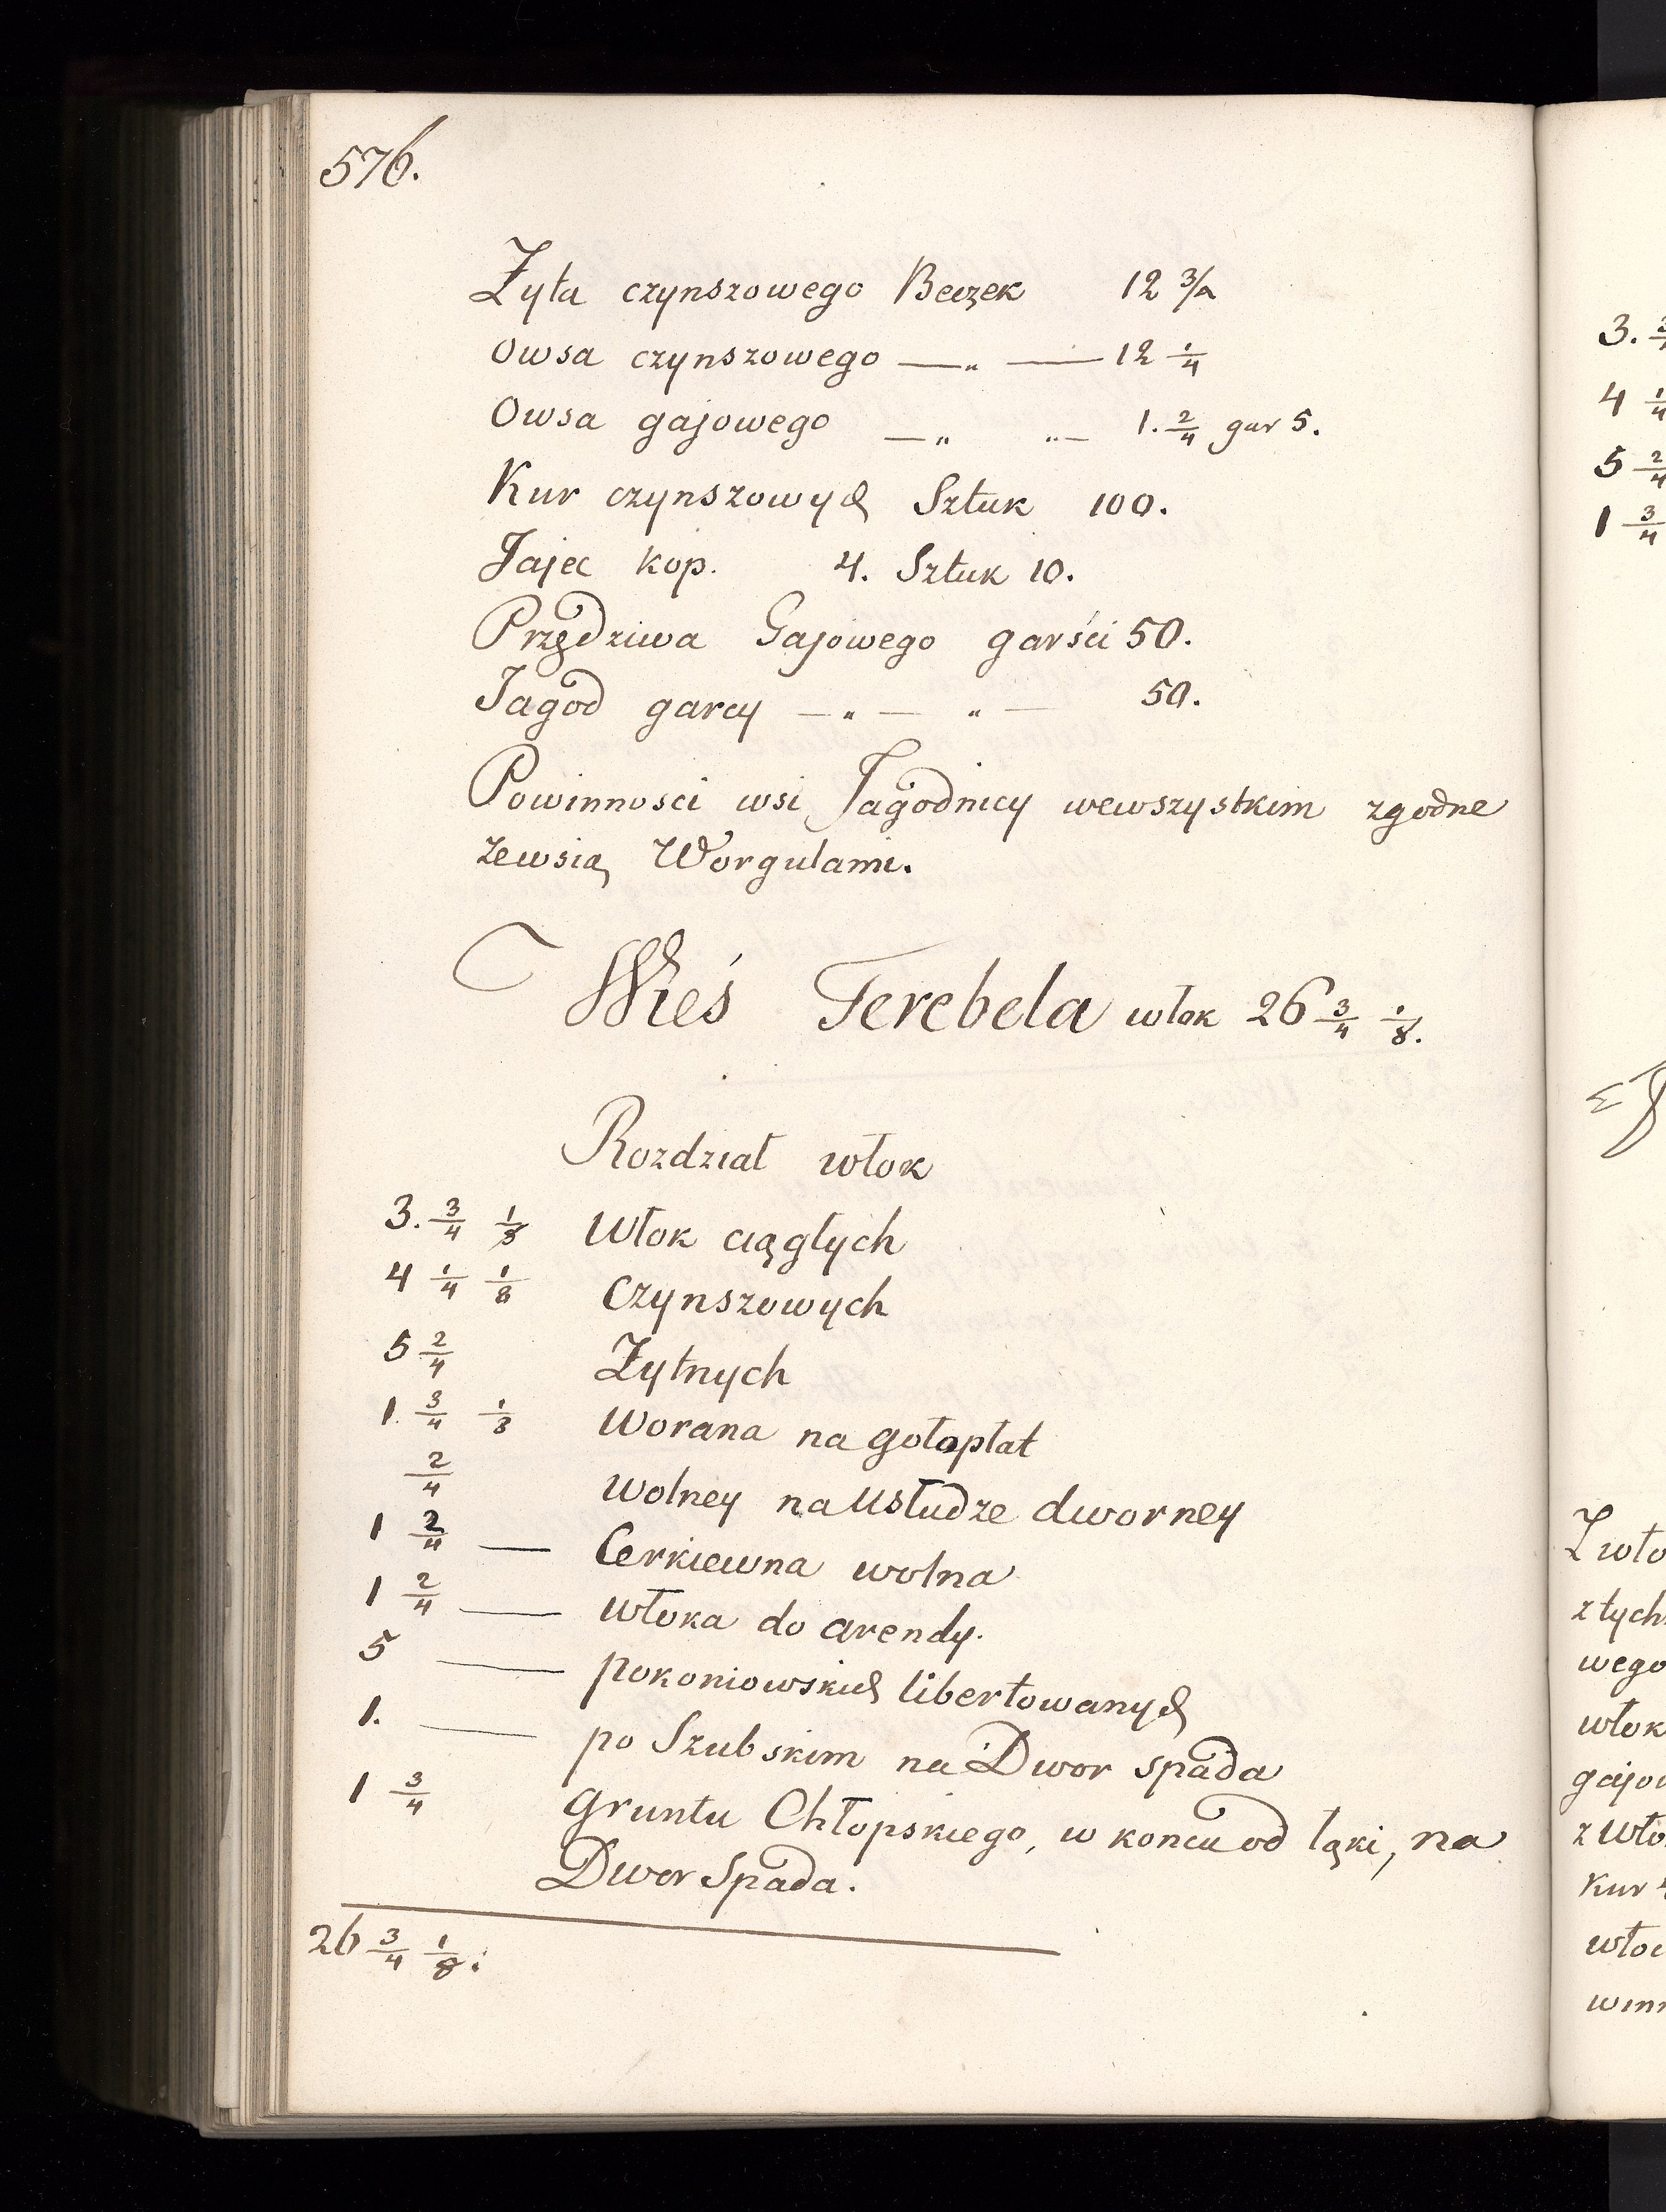 576.
Żyta czynszowego Beczek 12 3/4
Owsa czynszowego —„ — 12 1/4
Owsa gajowego —„ „— 1. 2/4 gar 5.
Kur czynszowych Sztuk 100.
Jajec kop. 4. Sztuk 10.
Przędziwa Gajowego garści 50.
Jagod garcy —„— „— 50.
Powinnosci wsi Jagodnicy wewszystkim zgodne
zewsią Worgulami.
Wieś Terebela włok 26 3/4 1/8.
Rozdział włok
3. 3/4 1/8 Włok ciągłych
4 1/4 1/8 Czynszowych
5 2/4 Żytnych
1. 3/4 1/8 Worana na gołopłat
2/4 Wolney na Usłudze dworney
1 2/4 — Cerkiewna wolna
1 2/4 — włoka do arendy.
5 — pokoniowskich libertowanych
1. — po Szubskim na Dwor spada
1 3/4 Gruntu Chłopskiego, w koncu od łąki, na
Dwor Spada.
26 3/4 1/8.
3.
4 1/4
5 2/4
1 3/4
z tych
wego
włok
Kur